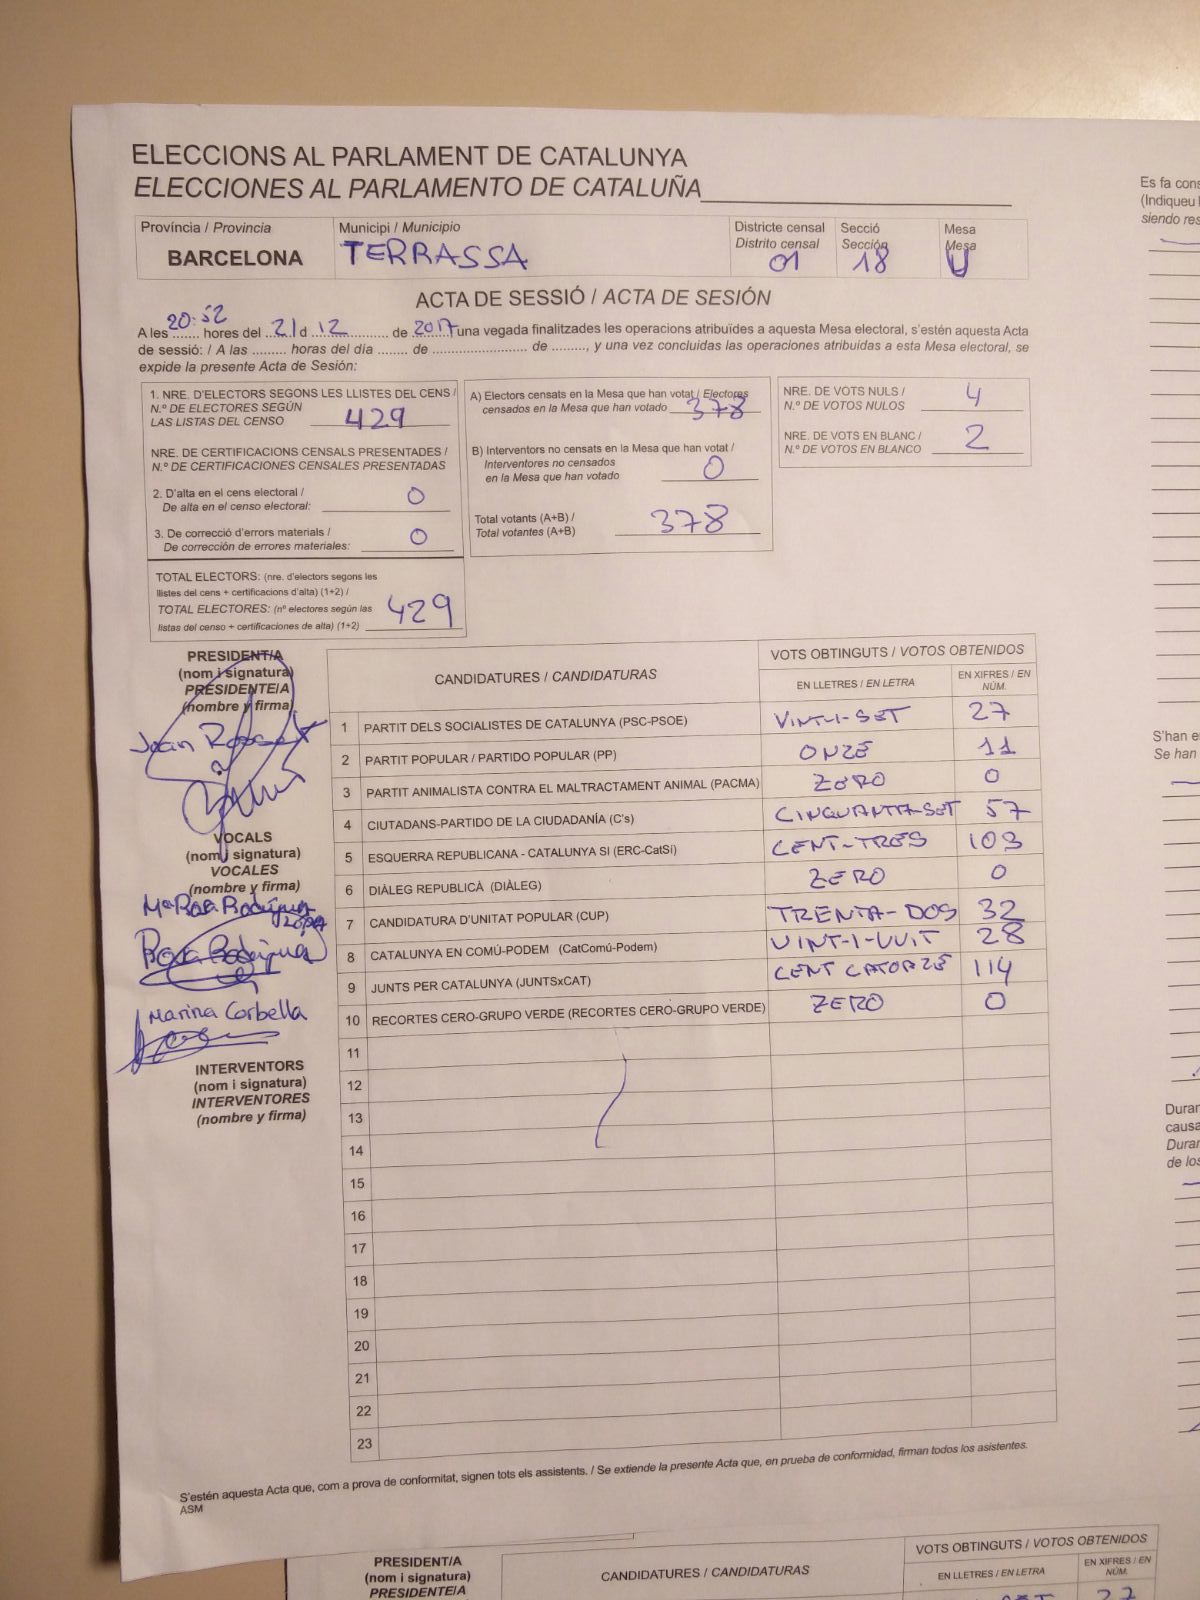 ELECCIONS AL PARLAMENT DE CATALUNYA
ELECCIONES AL PARLAMENTO DE CATALUÑA
Província / Provincia
BARCELONA
Municipi / Municipio
TERRASSA
Districte censal
Distrito censal
01
Secció
Sección
18
Mesa
Mesa
U
ACTA DE SESSIÓ / ACTA DE SESIÓN
A les 20:52 hores del 21 d 12 de 2017 una vegada finalitzades les operacions atribuïdes a aquesta Mesa electoral, s'estén aquesta Acta
de sessió: / A las ......... horas del día ....... de ....................... de ........., y una vez concluidas las operaciones atribuidas a esta Mesa electoral, se
expide la presente Acta de Sesión:
1. NRE. D'ELECTORS SEGONS LES LLISTES DEL CENS /
N.º DE ELECTORES SEGÚN
LAS LISTAS DEL CENSO 429
NRE. DE CERTIFICACIONS CENSALS PRESENTADES /
N.º DE CERTIFICACIONES CENSALES PRESENTADAS
2. D'alta en el cens electoral /
De alta en el censo electoral: 0
3. De correcció d'errors materials /
De corrección de errores materiales: 0
TOTAL ELECTORS: (nre. d'electors segons les
llistes del cens + certificacions d'alta) (1+2) /
TOTAL ELECTORES: (nº electores según las
listas del censo + certificaciones de alta) (1+2) 429
A) Electors censats en la Mesa que han votat / Electores
censados en la Mesa que han votado 378
B) Interventors no censats en la Mesa que han votat /
Interventores no censados
en la Mesa que han votado 0
Total votants (A+B) /
Total votantes (A+B) 378
NRE. DE VOTS NULS /
N.º DE VOTOS NULOS 4
NRE. DE VOTS EN BLANC /
N.º DE VOTOS EN BLANCO 2
PRESIDENT/A
(nom i signatura)
PRESIDENTE/A
(nombre y firma)
Joan
VOCALS
(nom i signatura)
VOCALES
(nombre y firma)
Mª Rosa Rodríguez
Rosa Rodríguez
Marina Corbella
INTERVENTORS
(nom i signatura)
INTERVENTORES
(nombre y firma)
CANDIDATURES / CANDIDATURAS
VOTS OBTINGUTS / VOTOS OBTENIDOS
EN LLETRES / EN LETRA
EN XIFRES / EN
NÚM.
1 PARTIT DELS SOCIALISTES DE CATALUNYA (PSC-PSOE) VINT-I-SET 27
2 PARTIT POPULAR / PARTIDO POPULAR (PP) ONZE 11
3 PARTIT ANIMALISTA CONTRA EL MALTRACTAMENT ANIMAL (PACMA) ZERO 0
4 CIUTADANS-PARTIDO DE LA CIUDADANÍA (C's) CINQUANTA-SET 57
5 ESQUERRA REPUBLICANA - CATALUNYA SI (ERC-CatSí) CENT-TRES 103
6 DIÀLEG REPUBLICÀ (DIÀLEG) ZERO 0
7 CANDIDATURA D'UNITAT POPULAR (CUP) TRENTA-DOS 32
8 CATALUNYA EN COMÚ-PODEM (CatComú-Podem) VINT-I-VUIT 28
9 JUNTS PER CATALUNYA (JUNTSxCAT) CENT CATORZE 114
10 RECORTES CERO-GRUPO VERDE (RECORTES CERO-GRUPO VERDE) ZERO 0
11
12
13
14
15
16
17
18
19
20
21
22
23
S'estén aquesta Acta que, com a prova de conformitat, signen tots els assistents. / Se extiende la presente Acta que, en prueba de conformidad, firman todos los asistentes.
ASM
Es fa cons
(Indiqueu
siendo res
S'han e
Se han
Duran
causa
Duran
de los
PRESIDENT/A
(nom i signatura)
PRESIDENTE/A
CANDIDATURES / CANDIDATURAS
VOTS OBTINGUTS / VOTOS OBTENIDOS
EN LLETRES / EN LETRA
EN XIFRES / EN
NÚM.
27